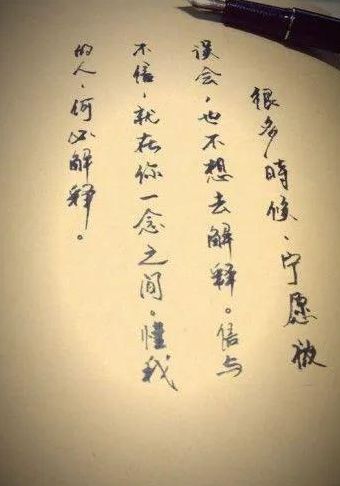 很多時候、宁愿被
误会，也不想去解释。信与
不信，就在你一念之间。懂我
的人，何必解释。